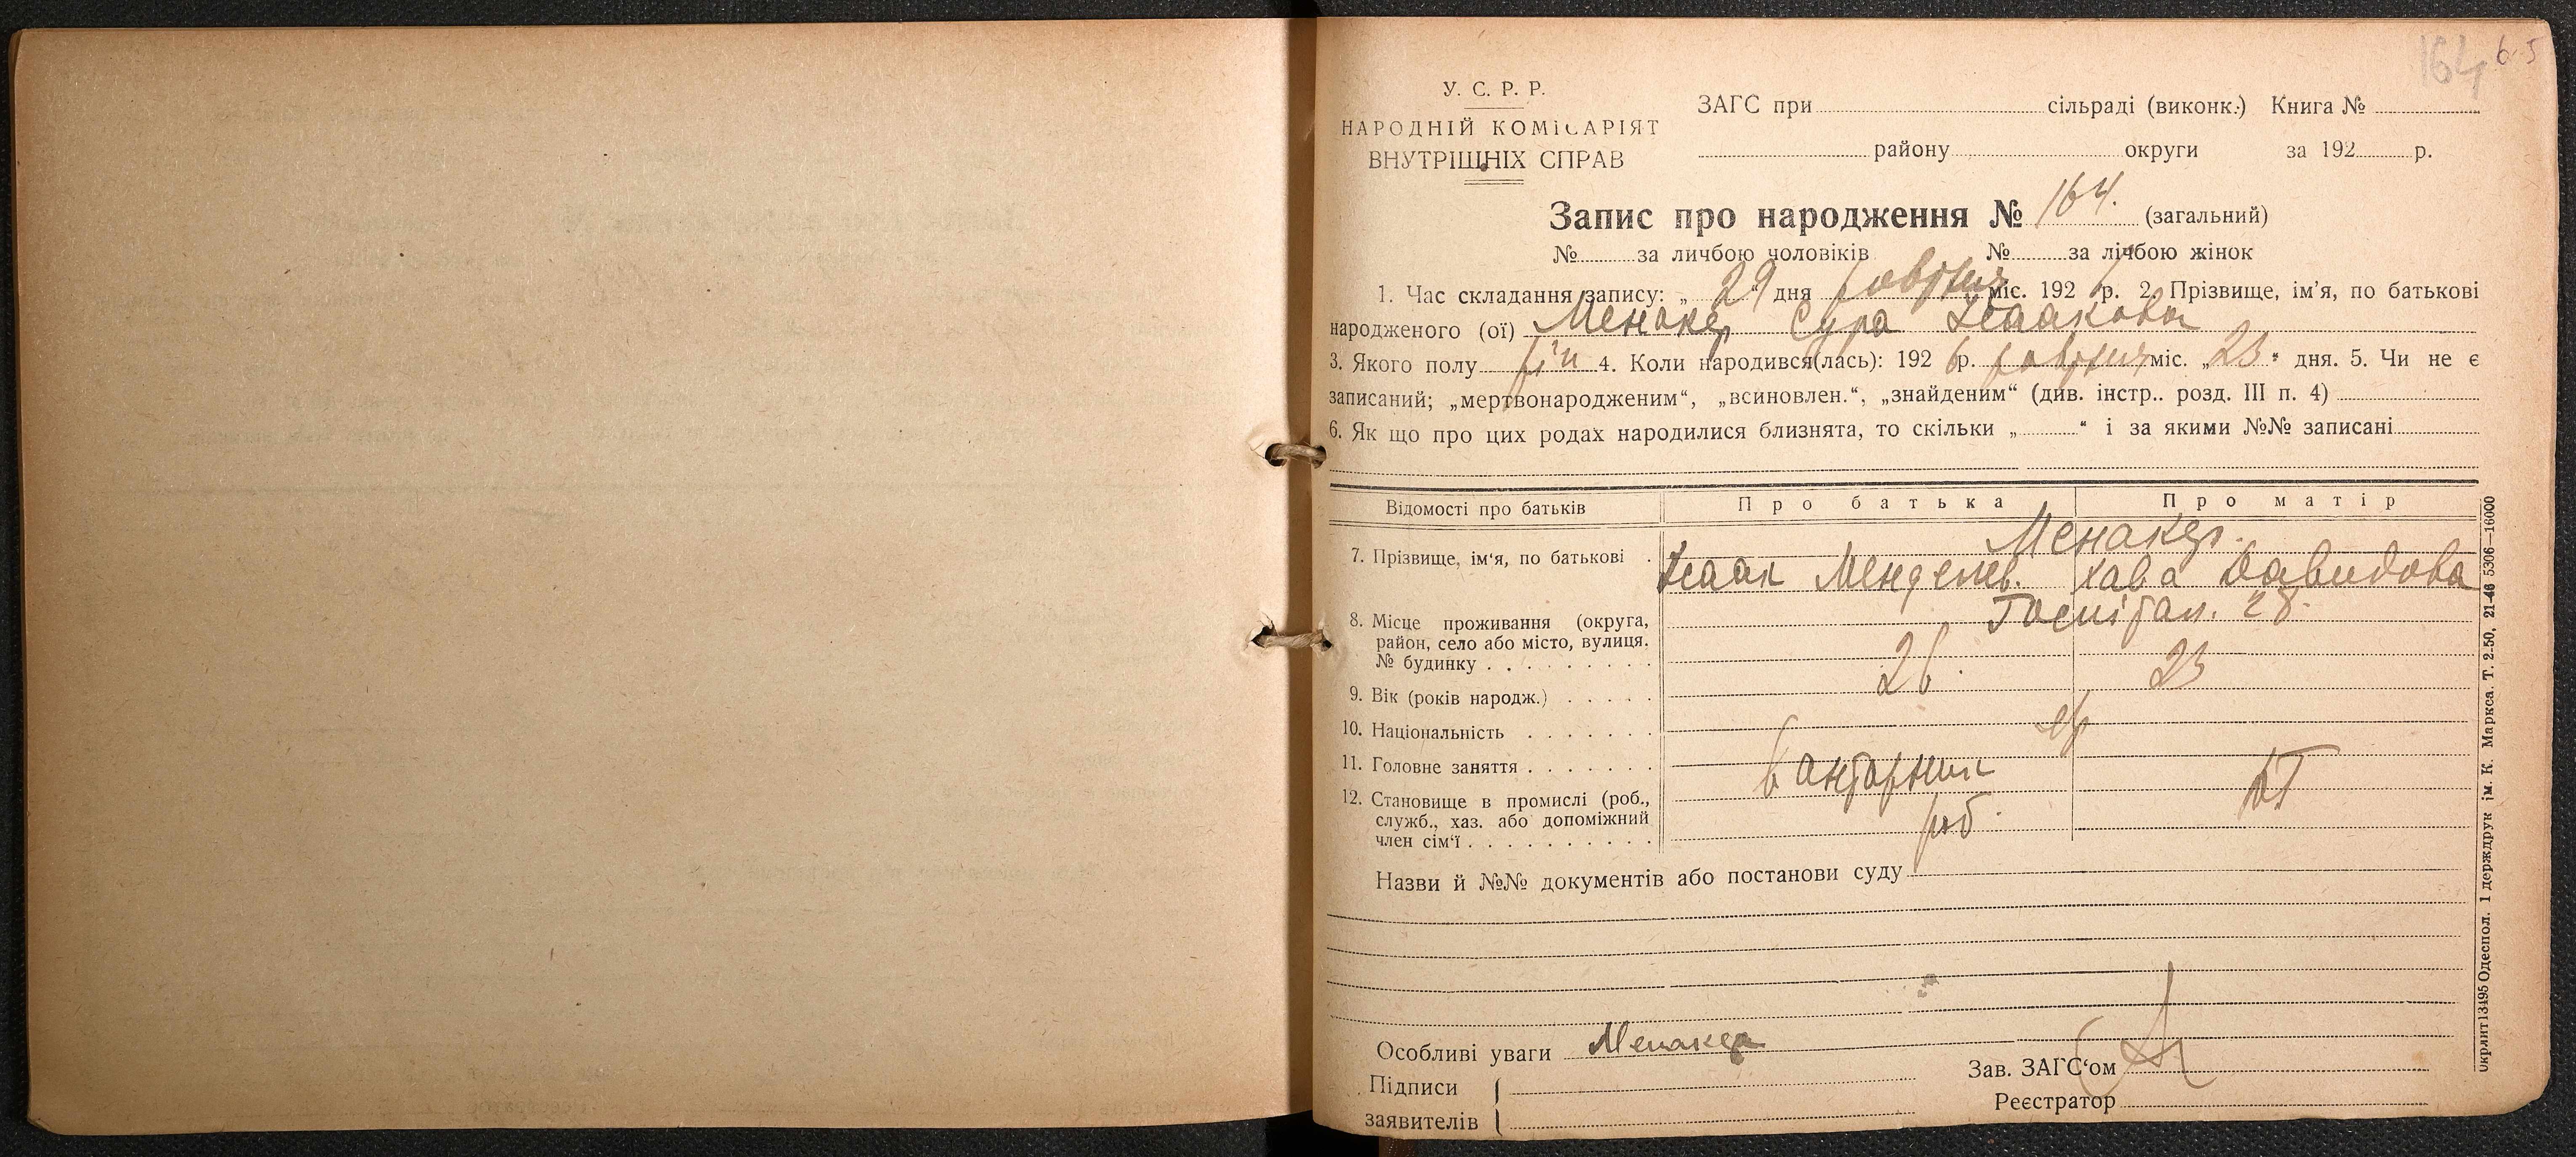 164 6-5
У. С. Р. Р.
НАРОДНІЙ КОМІСАРІЯТ
ВНУТРІШНІХ СПРАВ
ЗАГС при сільраді (виконк.) Книга №
району округи за 192 р.
Запис про народження № 164. (загальний)
№ за личбою чоловіків № за лічбою жінок
1. Час складання запису: „ 29 “ дня жовтня міс. 192 6 р. 2. Прізвище, ім’я, по батькові
народженого (ої) Менакер Сура Ісаакова
3. Якого полу жін 4. Коли народився(лась): 192 6 р. жовтня міс. „ 23 “ дня. 5. Чи не є
записаний; „мертвонародженим“, „всиновлен.“, „знайденим“ (див. інстр.. розд. III п. 4)
6. Як що про цих родах народилися близнята, то скільки „ “ і за якими №№ записані
Відомості про батьків Про батька Про матір
Менакер.
7. Прізвище, ім‘я, по батькові Ісаак Менделев. Хава Давидова
Госпітал. 28.
8. Місце проживання (округа,
район, село або місто, вулиця.
№ будинку
9. Вік (років народж.) 26. 23
10. Національність евр
11. Головне заняття
12. Становище в промислі (роб.,
служб., хаз. або допоміжний
член сім‘ї роб. дг
Назви й №№ документів або постанови суду
Особливі уваги Менакер
Підписи
заявителів
Зав. ЗАГС‘ом
Реєстратор
Окрлит 13495 Одеспол. 1 держдрук ім. К. Маркса. Т. 2-50, 21-46 5306—16000